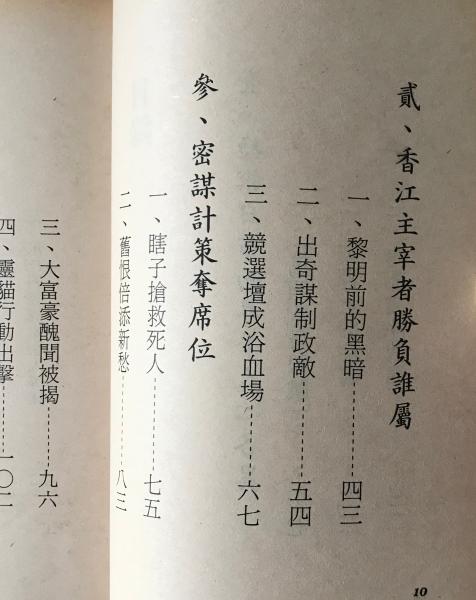 貳、香江主宰者勝負誰屬
一、黎明前的黑暗………四三
二、出奇謀制政敵………五四
三、競選壇成浴血場………六七
參、密謀計策奪席位
一、瞎子搶救死人………七五
二、舊恨倍添新愁………八三
三、大富豪醜聞被揭………九六
四、靈貓行動出擊………一〇二
10